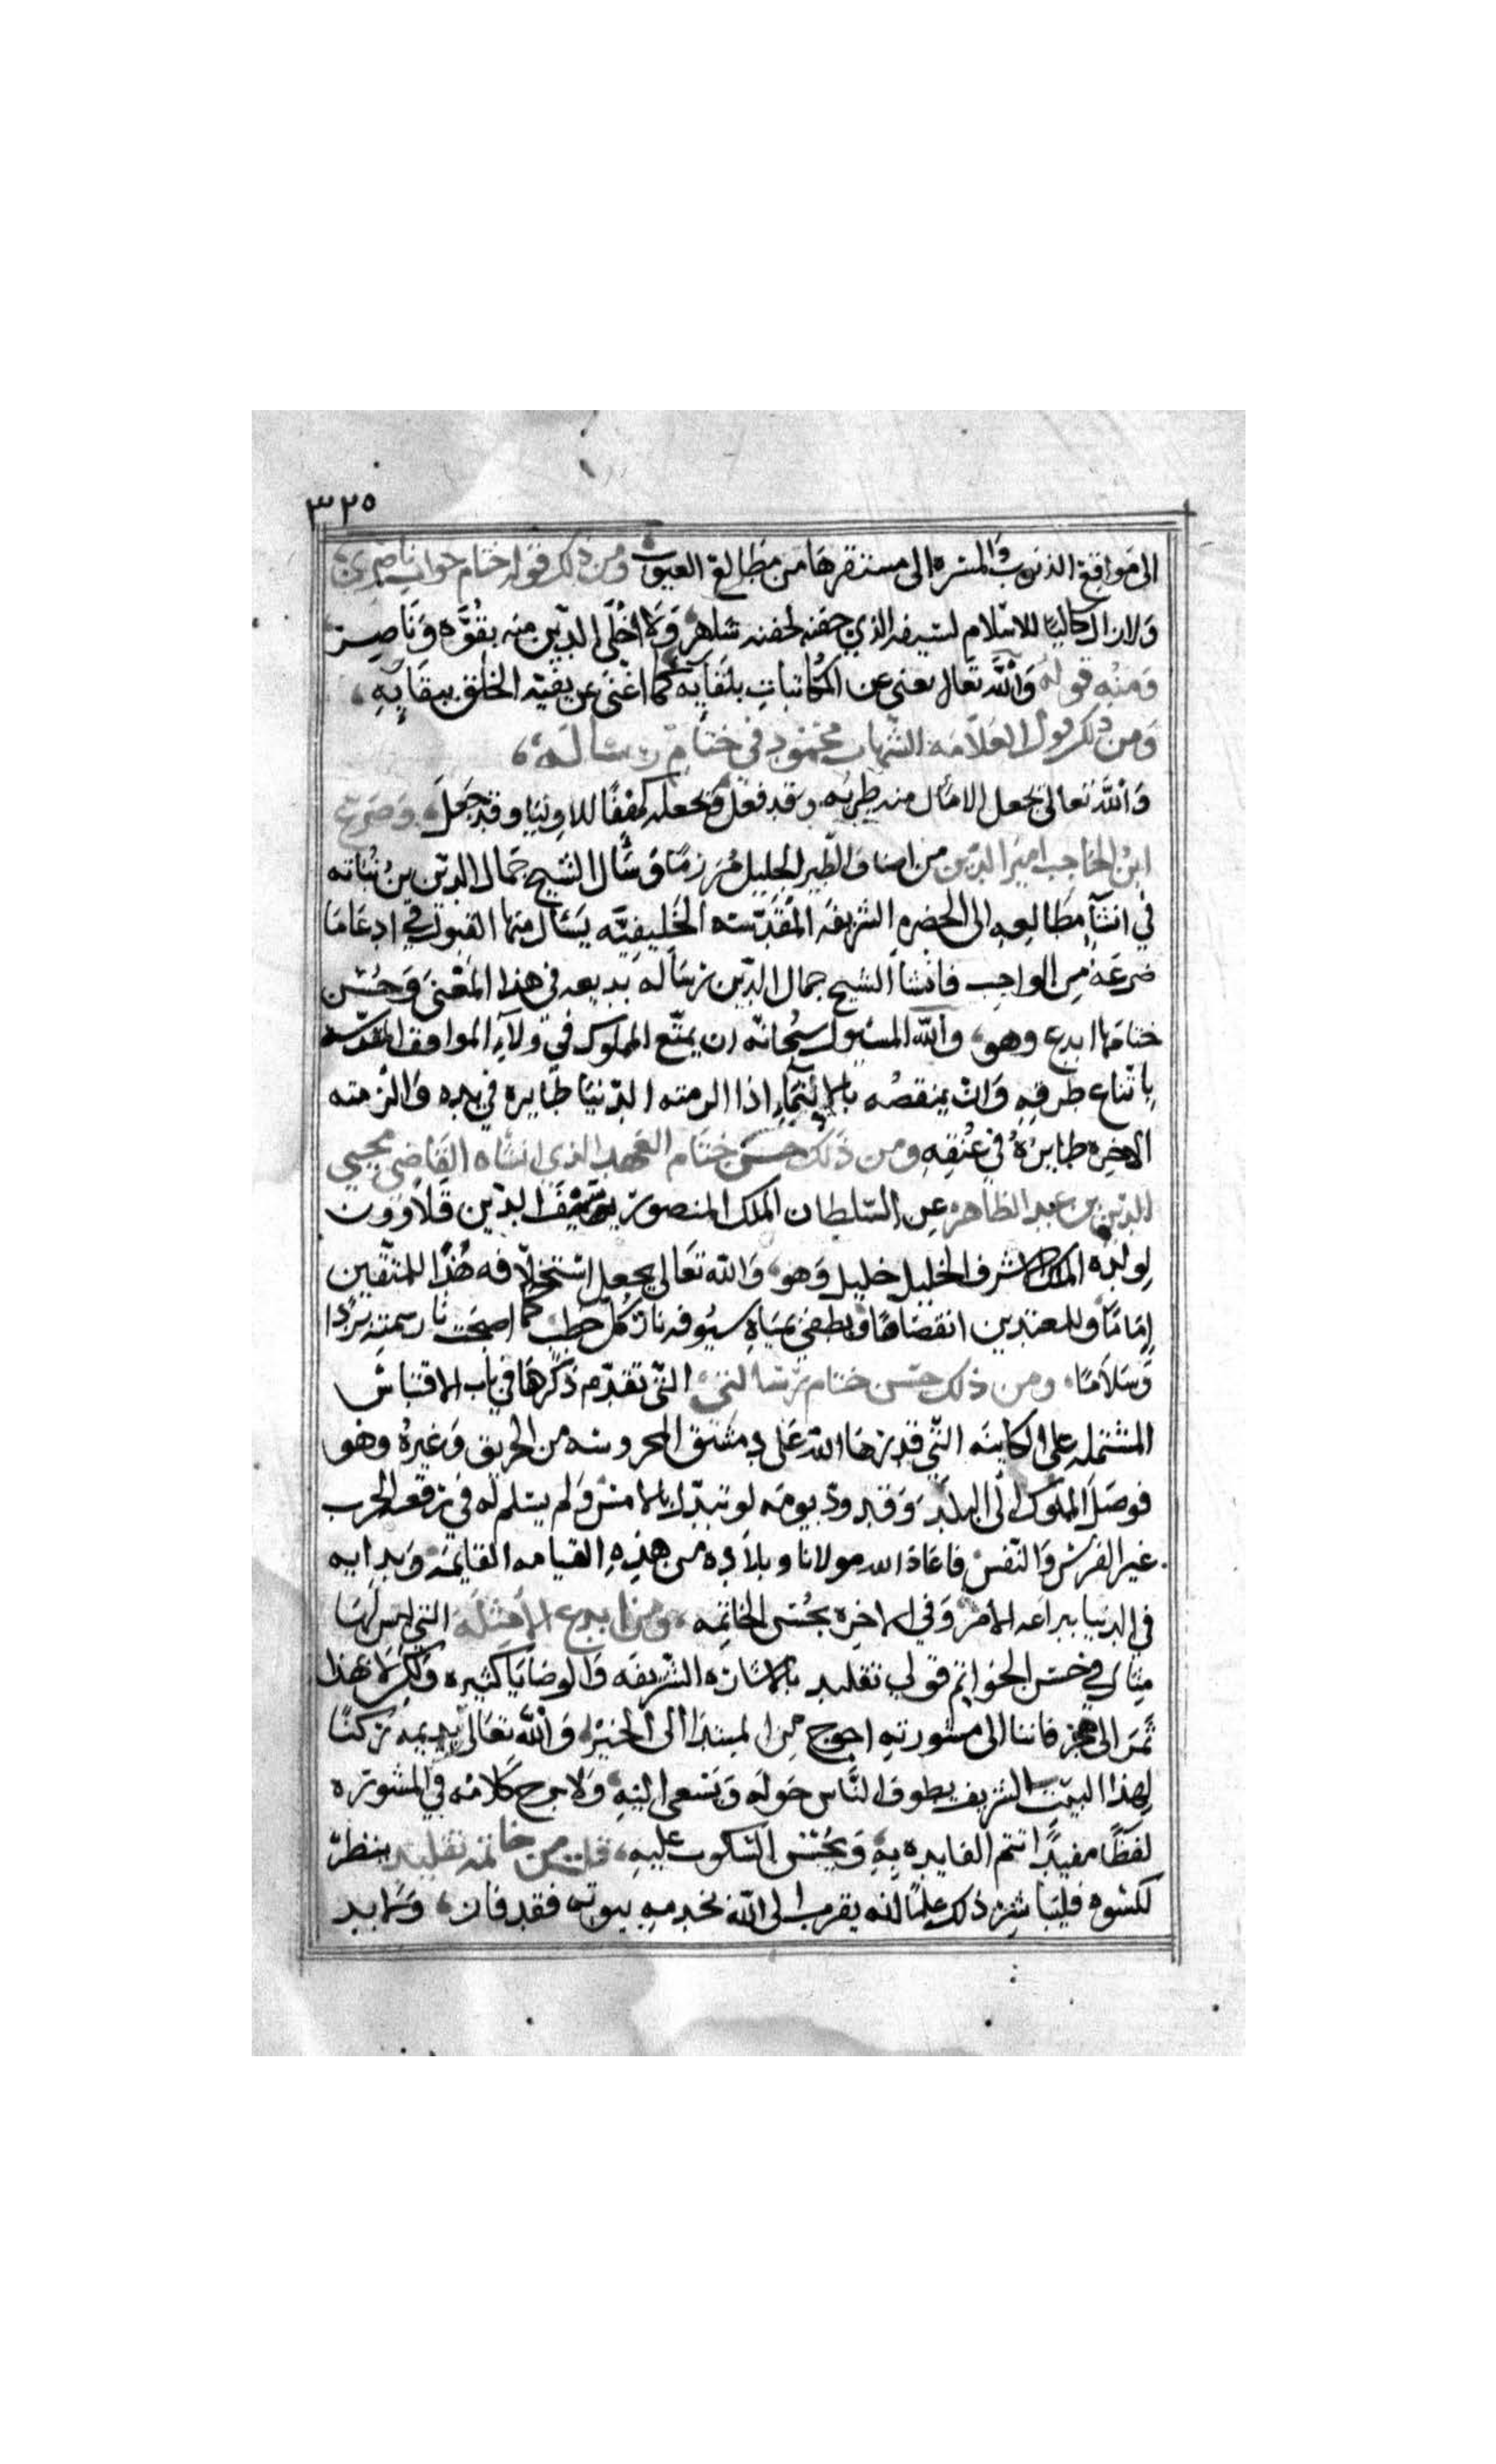 ٣٢٥
الى مواقع الذنوب والمسره الى مستقرها من مطالع الغيوب ومن ذلك قوله ختام جواب ناصري
ولا زال كاليًا للاسلام بسيفه الذي جفنه لجفنه شاهر ولا اخلى الدين منه بقوه وناصر
ومنه قوله والله تعالى يغنى عن المكاتبات بلقآيه كما اغنى عن بقية الخلق ببقآيه
ومن ذلك قول العلامه الشهاب محمود في ختام رساله
والله تعالى يجعل الامال منه طربه وقد فعل ويجعله كهفًا للاوليا وقد جعل وصرع
ابن الحاجب امير الدين من اصناف الطير الجليل مرزمًا وسأل الشيخ جمال الدين بن نباته
في انشآ مطالعه الى الحضره الشريفه المقدسه الخليفيه يسأل منها القبول في ادعا ما
صرعه من الواجب فانشا الشيخ جمال الدين رساله بديعه في هذا المعنى وحسن
ختامها ابدع وهو والله المسئول سبحانه ان يمتع المملوك في ولآء المواقف المقدسه
باتباع طرقه وان ينقصه بالانتمآء اذا الزمته الدنيا طايره في يده والزمته
الاخره طايره في عنقه ومن ذلك حسن ختام العهد الذي انشاه القاضي محيي
الدين بن عبد الظاهر عن السلطان الملك المنصور سيف الدين قلاوون
لولده الملك الاشرف الخليل خليل وهو والله تعالى يجعل استخلافه هذا للمتقين
إمامًا وللمعتدين انقصامًا ويطفي بمياه سيوفه نار كل خطب كما اصبحت نار سميه بردا
وسلامًا ومن ذلك حسن ختام رسالتي التي تقدم ذكرها في باب الاقتباس
المشتمله على الكاينه التي قدرها الله على دمشق المحروسه من الحريق وغيره وهو
فوصل المملوك الى البلد وقد ود يومه لو تبدل بالامس ولم يسلم له في رقعه الحرب
غير الفرس والنفس فاعاذ الله مولانا وبلاده من هذه القيامه القايمه وبدايه
في الدنيا ببراعه الامر وفي الاخره بحسن الخاتمه ومن ابدع الامثله التي ليس لها
مثال في حسن الخواتم قولي تقليد بالاشاره الشريفه والوصايا كثيره ولكن لا يهدا
ثمر الى هجر فاننا الى مشورته احوج من المبتدا الى الخبر والله تعالى يديمه ركنًا
لهذا البيت الشريف يطوف الناس حوله ويسعى اليه ولا برح كلامه في المشوره
لفظًا مفيدًا تتم الفايده به ويحسن السكوت عليه قلت من خاتمه تقليد بنظر
لكسوه فليباشر ذلك علمًا انه يقرب الى الله بخدمه بيوته فقد فاز ولابد